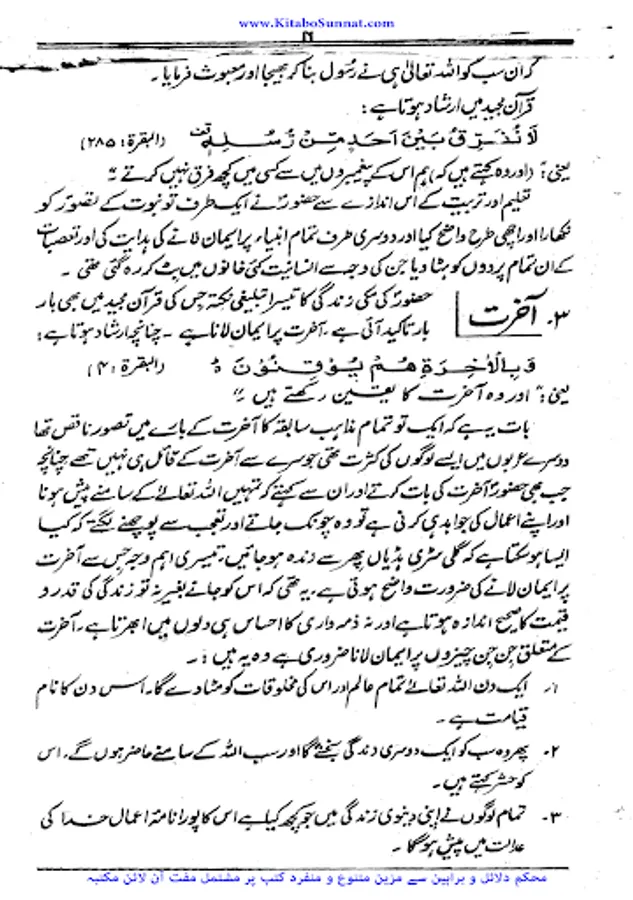 www.KitaboSunnat.com
کہ ان سب کو اللہ تعالیٰ ہی نے رسول بنا کر بھیجا اور مبعوث فرمایا۔
قرآن مجید میں ارشاد ہوتا ہے:
لَا نُفَرِّقُ بَيْنَ اَحَدٍ مِّنْ رُّسُلِهٖ (البقرۃ: ۲۸۵)
یعنی: "(اور وہ کہتے ہیں کہ) ہم اس کے پیغمبروں میں سے کسی میں کچھ فرق نہیں کرتے"
تعلیم اور تربیت کے اس انداز سے حضورؐ نے ایک طرف تو نبوت کے تصور کو
نکھارا اور اچھی طرح واضح کیا اور دوسری طرف تمام انبیاء پر ایمان لانے کی ہدایت کی اور تعصبات
کے ان تمام پردوں کو ہٹا دیا جن کی وجہ سے انسانیت کئی خانوں میں بٹ کر رہ گئی تھی۔
۳۔ آخرت
حضورؐ کی مکی زندگی کا تیسرا تبلیغی نکتہ جس کی قرآن مجید میں بھی بار
بار تاکید آئی ہے۔ آخرت پر ایمان لانا ہے۔ چنانچہ ارشاد ہوتا ہے:
وَبِالْاٰخِرَةِ هُمْ يُوْقِنُوْنَ (البقرۃ: ۴)
یعنی: "اور وہ آخرت کا یقین رکھتے ہیں"
بات یہ ہے کہ ایک تو تمام مذاہب سابقہ کا آخرت کے بارے میں تصور ناقص تھا
دوسرے عربوں میں ایسے لوگوں کی کثرت تھی جو سرے سے آخرت کے قائل ہی نہیں تھے چنانچہ
جب بھی حضورؐ آخرت کی بات کرتے اور ان سے کہتے کہ تمہیں اللہ تعالےٰ کے سامنے پیش ہونا
اور اپنے اعمال کی جوابدہی کرنی ہے تو وہ چونک جاتے اور تعجب سے پوچھنے لگتے کہ کیا
ایسا ہو سکتا ہے کہ گلی سڑی ہڈیاں پھر سے زندہ ہو جائیں، تیسری اہم وجہ جس سے آخرت
پر ایمان لانے کی ضرورت واضح ہوتی ہے، یہ تھی کہ اس کو جانے بغیر نہ تو زندگی کی قدر و
قیمت کا صحیح اندازہ ہوتا ہے اور نہ ذمہ داری کا احساس ہی دلوں میں ابھرتا ہے۔ آخرت
کے متعلق جن جن چیزوں پر ایمان لانا ضروری ہے وہ یہ ہیں:۔
۱۔ ایک دن اللہ تعالےٰ تمام عالم اور اس کی مخلوقات کو مٹا دے گا۔ اس دن کا نام
قیامت ہے۔
۲۔ پھر وہ سب کو ایک دوسری زندگی بخشے گا اور سب اللہ کے سامنے حاضر ہوں گے۔ اس
کو حشر کہتے ہیں۔
۳۔ تمام لوگوں نے اپنی دنیوی زندگی میں جو کچھ کیا ہے اس کا پورا نامۂ اعمال خدا کی
عدالت میں پیش ہو گا۔
محکم دلائل و براہین سے مزین متنوع و منفرد کتب پر مشتمل مفت آن لائن مکتبہ